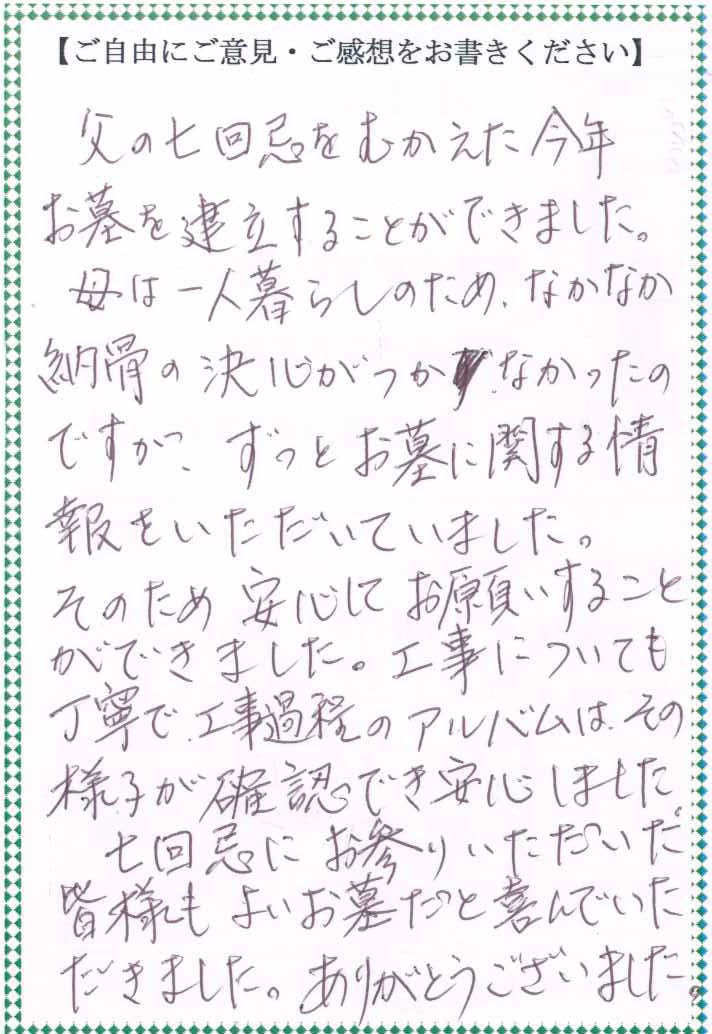 【ご自由にご意見・ご感想をお書きください】
父の七回忌をむかえた今年
お墓を建立することができました。
母は一人暮らしのため、なかなか
納骨の決心がつかなかったの
ですが、ずっとお墓に関する情
報をいただいていました。
そのため安心してお願いすること
ができました。工事についても
丁寧で、工事過程のアルバムは、その
様子が確認でき安心しました。
七回忌にお参りいただいた
皆様もよいお墓だと喜んでいた
だきました。ありがとうございました。